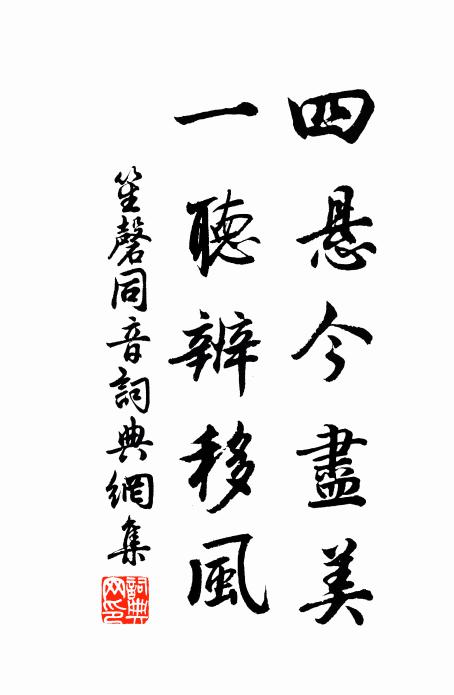 四悬今盡美
一聽辨移風
笙磬同音詞典網集
詞典
网印